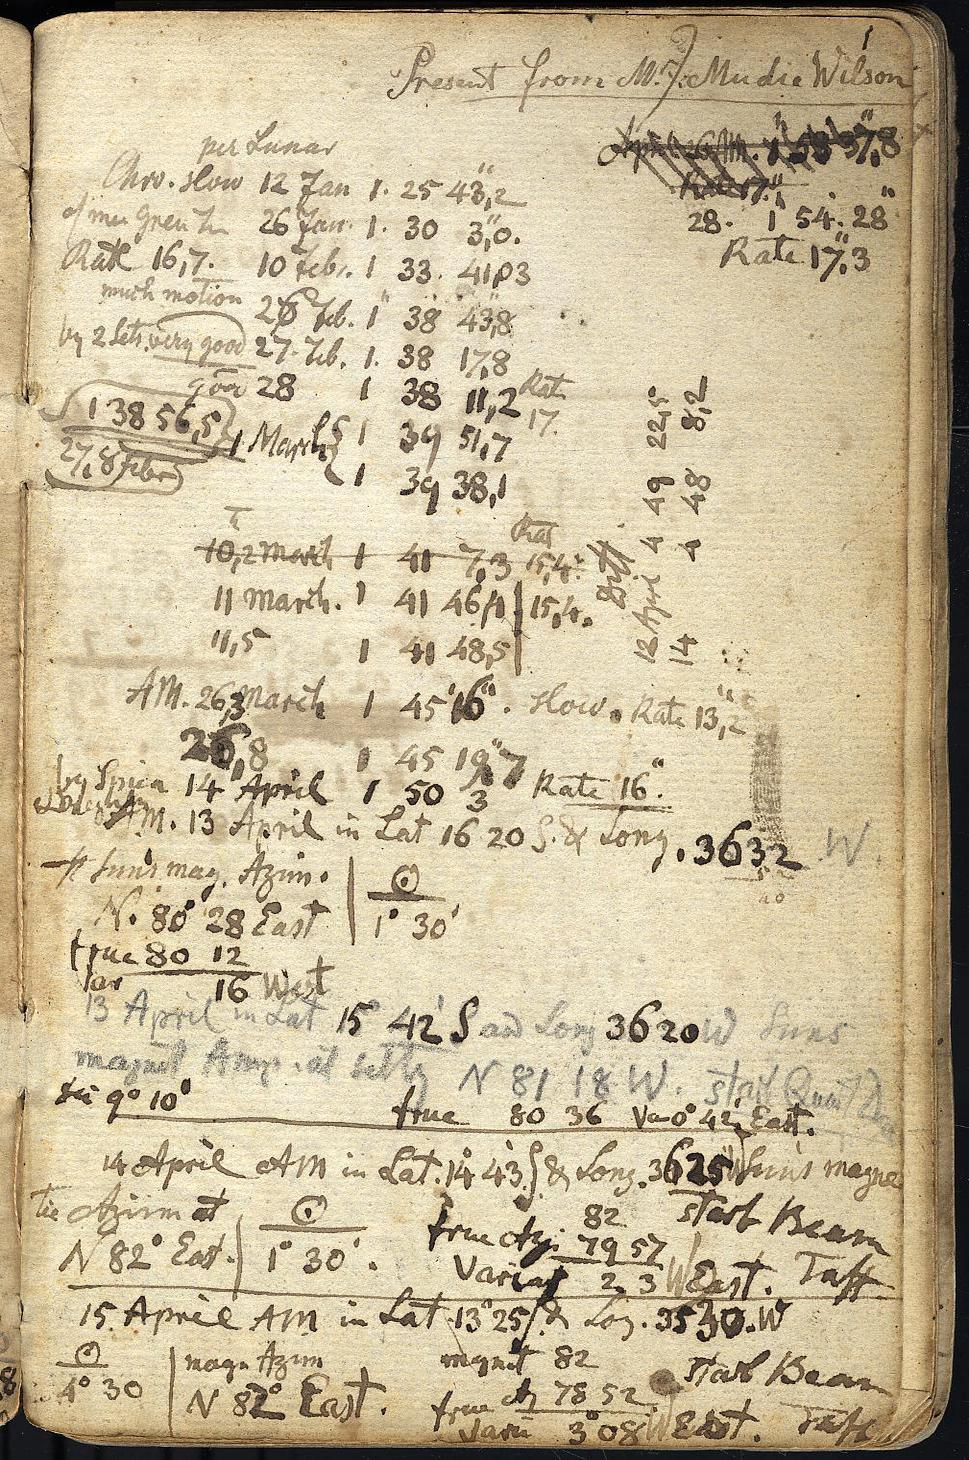 1
Present from Mr. J. Mudie Wilson
April 26 AM. 1 53 37,8
Rate 17"
28. 1 54. 28"
Rate 17",3
per Lunar
Chro. slow 12 Jan 1. 25 43",2
of mn Green 26 Jan. 1. 30 3",0.
Rate 16,7. 10 Feb. 1 33. 41,03
much motion
26 Feb. 1 38 43",8
by 2 sets. very good 27. Feb. 1. 38 17,8
good 28 1 38 11,2 Rat
17.
1 38 56,5
27,8 Febr
1 March 1 39 51,7
1 39 38,1
Rat
10,2 March 1 41 7,3 15,4
11 march. 1 41 46,1 15,4.
11,5 1 41 48,5
Diff
12 April 4 49 22,5
14 4 48 8,2
AM. 26,3 March 1 45' 16". slow. Rate 13",2
26,8 1 45 19",7
by Spica 14 April 1 50 3 Rate 16".
AM. 13 April in Lat 16 20 S. & Long. 36 32 W.
Suns mag. Azim.
N. 80° 28 East
☉
1° 30'
true 80 12
Var 16 West
13 April in Lat 15° 42' S and Long 36 20 W Suns
magnet Amp. at setting N 81 18 W. starb Quart
tic 9° 10' true 80 36 Va 0° 42' East.
14 April AM in Lat. 14 43. S & Long. 36 25 W Suns magne
tic Azim at
☉
1° 30'.
N 82° East.
82
true Az. 79 57
Varia 2 3 W East.
starb Beam
Taff
15 April AM in Lat. 13° 25' S. & Long. 35 30. W
☉
4° 30
magn Azim
N 82° East.
magnet 82
true Az 78 52
Vari 3° 08 W East.
starb Beam
Taff